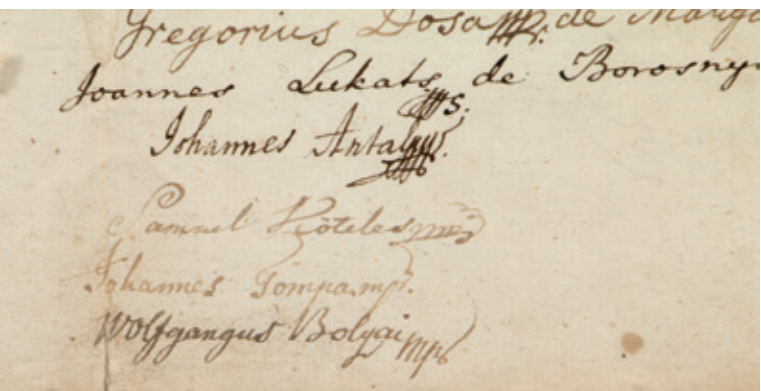 Gregorius Dosa mpr. de
Joannes Lukats de Borosnya
Johannes Antal
Samuel Köteles mp
Johannes Tompa mp.
Wolfgangus Bolyai mp